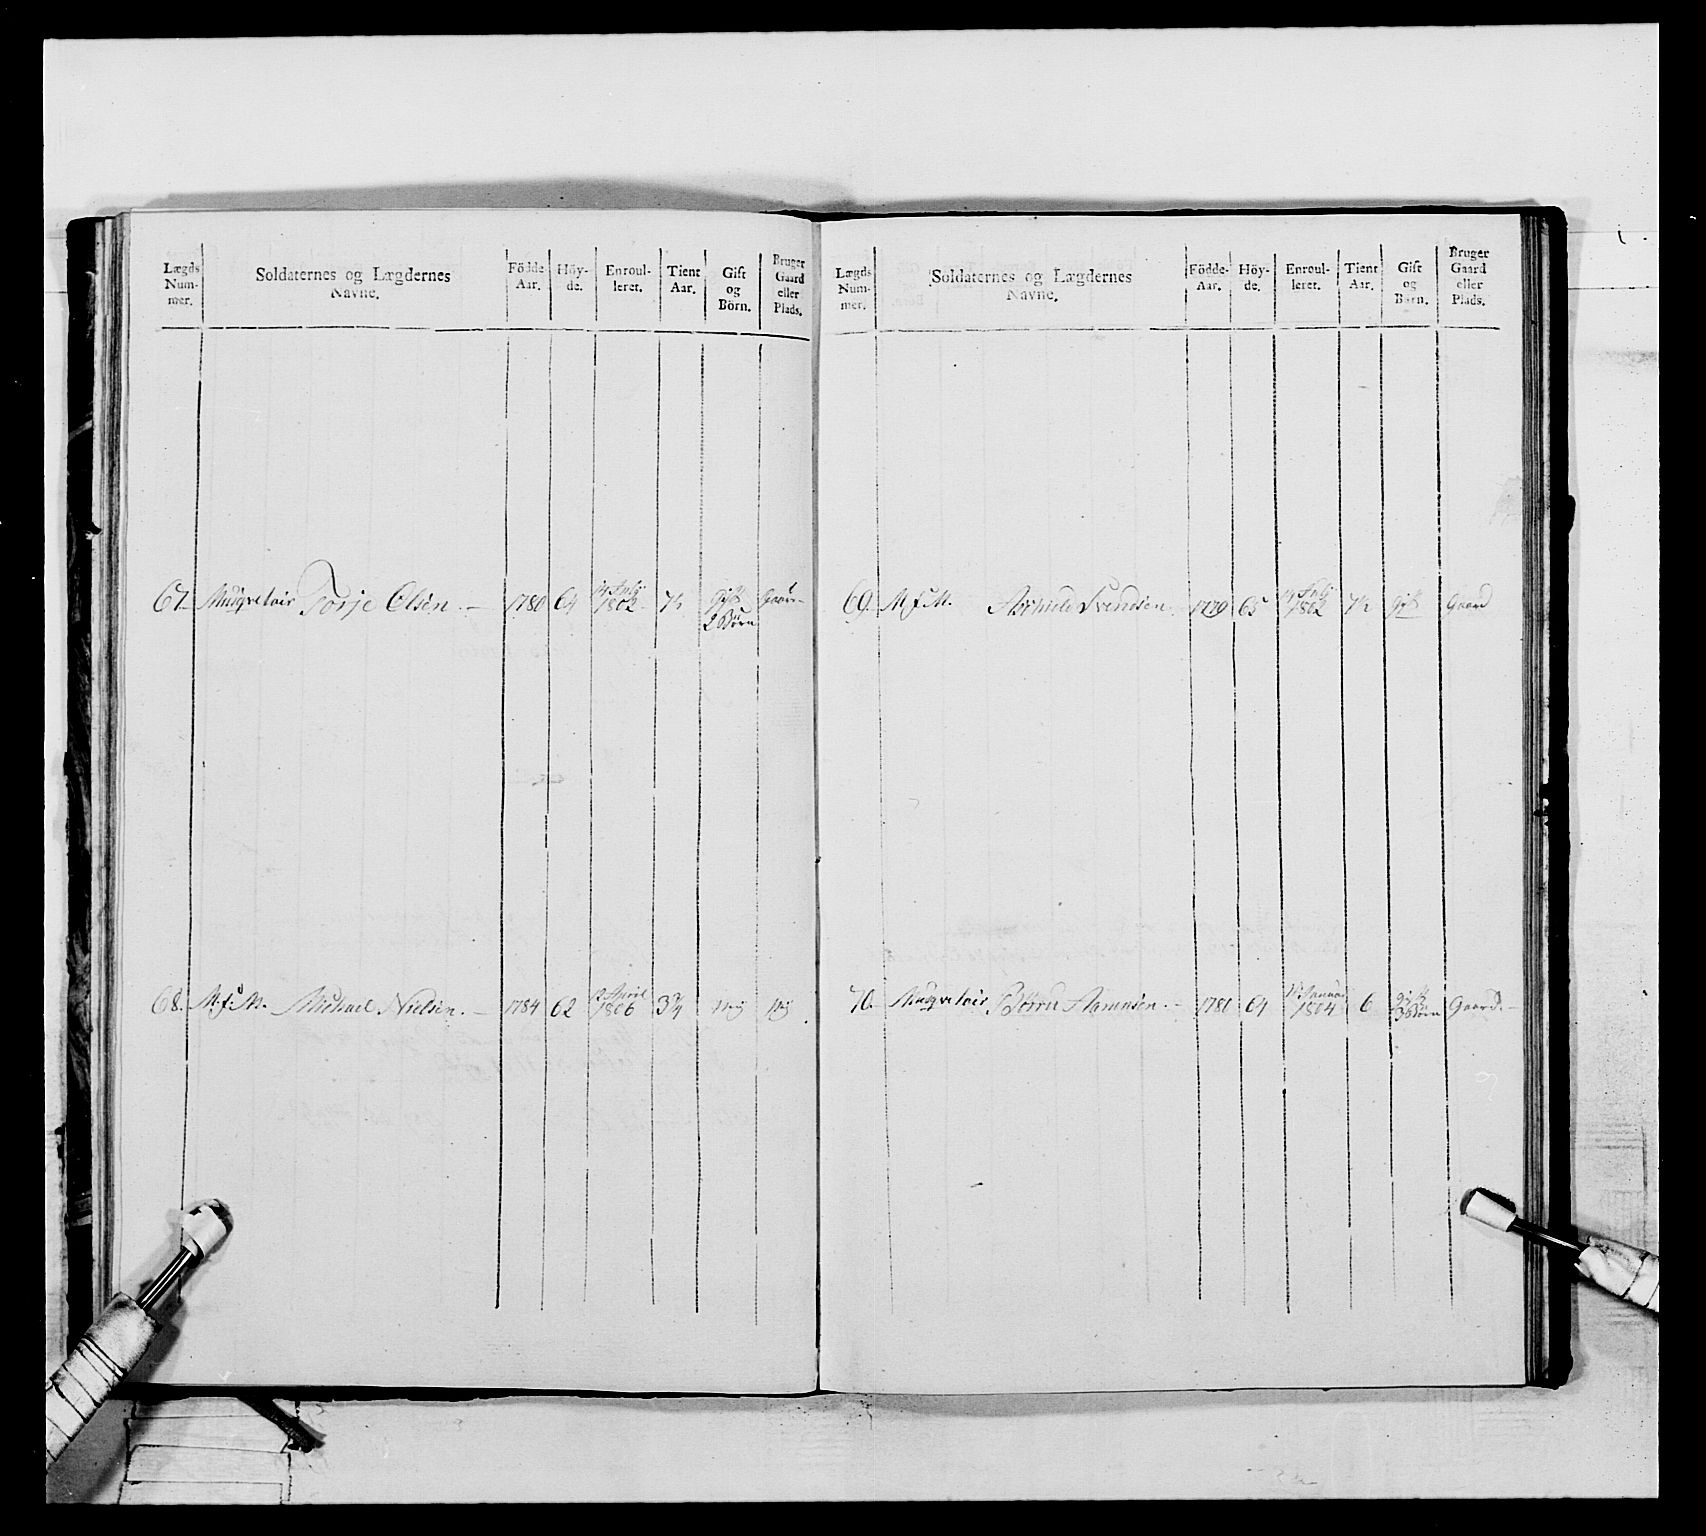 Lægds Num-mer. Soldaternes og Lægdernes Navne. Födde Aar. Höy-de. Enroul-leret. Tient Aar. Gift og Börn. Bruger Gaard eller Plads.
67. Musqvetair Torje Olsen. — 1780 64 July 1802. 7½ Gift 2 Börn Gaard
68. Michael Nielsen. — 1784 62 12 April 1806 3¾ Nej Nej
Lægds Num-mer. Soldaternes og Lægdernes Navne. Födde-Aar. Höy-de. Enroul-leret. Tient Aar. Gift og Börn. Bruger Gaard eller Plads.
69. Svendsen. 1779 65 July 1802 7½ Gift Gaard
70. Musqvetair Aanensen. — 1780 64 Januar 1804 6 Gift 3 Börn Gaard. —